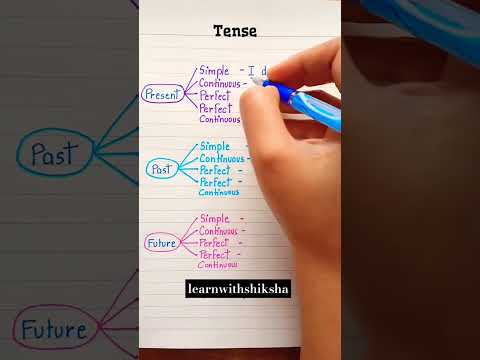 Tense
Present
Simple - I d
Continuous -
Perfect
Perfect
Continuous
Past
Past
Simple -
Continuous -
Perfect -
Perfect -
Continuous
Future
Future
Simple -
Continuous -
Perfect -
Perfect -
Continuous
learnwithshiksha